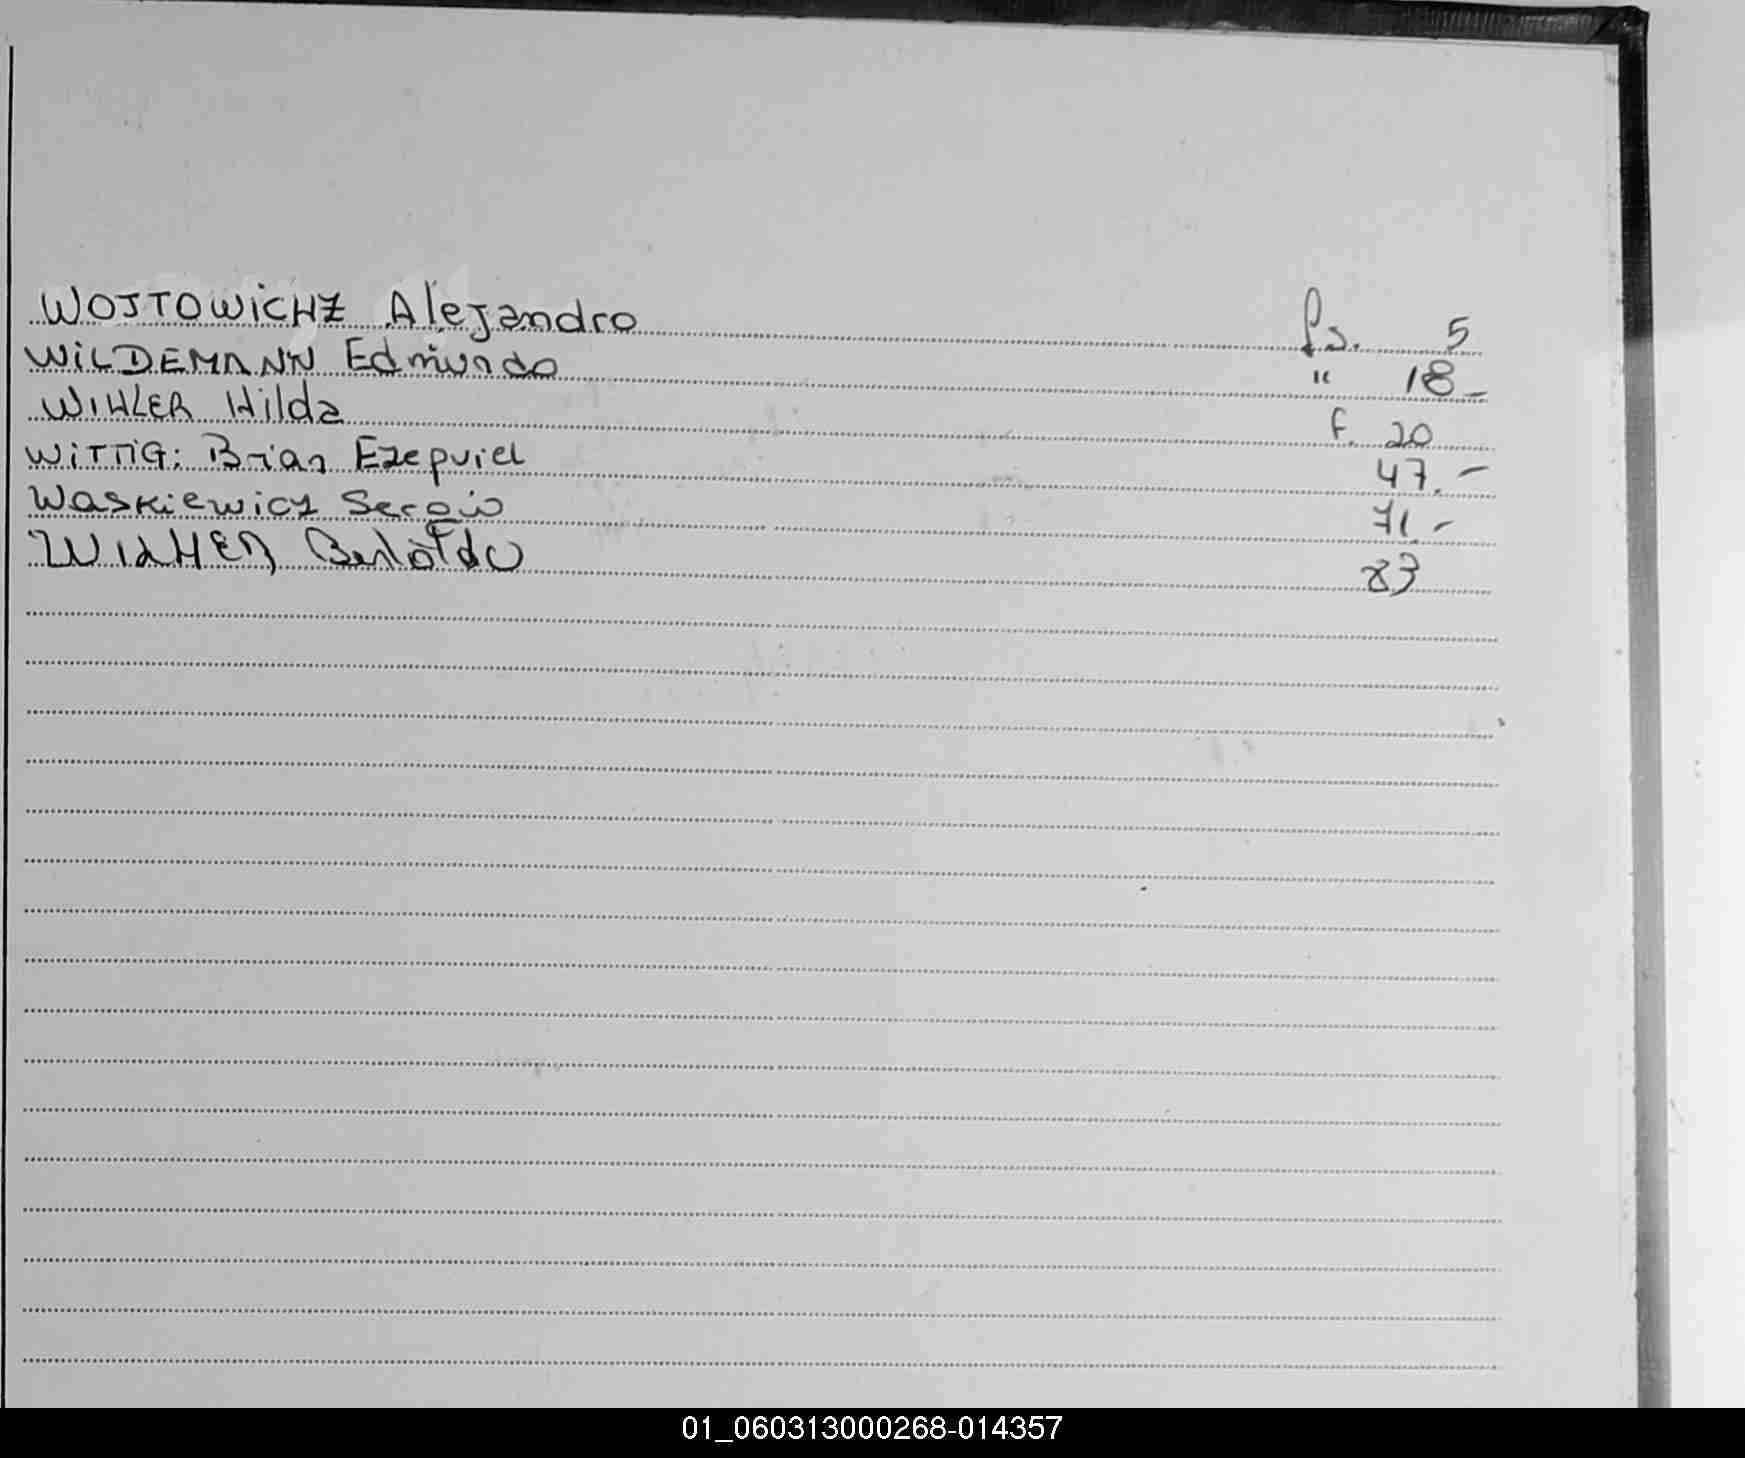 WOJTOWICHZ Alejandro fs. 5
WILDEMANN Edmundo " 18-
WIHLER Hilda f. 20
WITTIG: Brian Ezequiel 47.-
Waskiewicz Sergio 71.-
Bertoldo 83
01_060313000268-014357